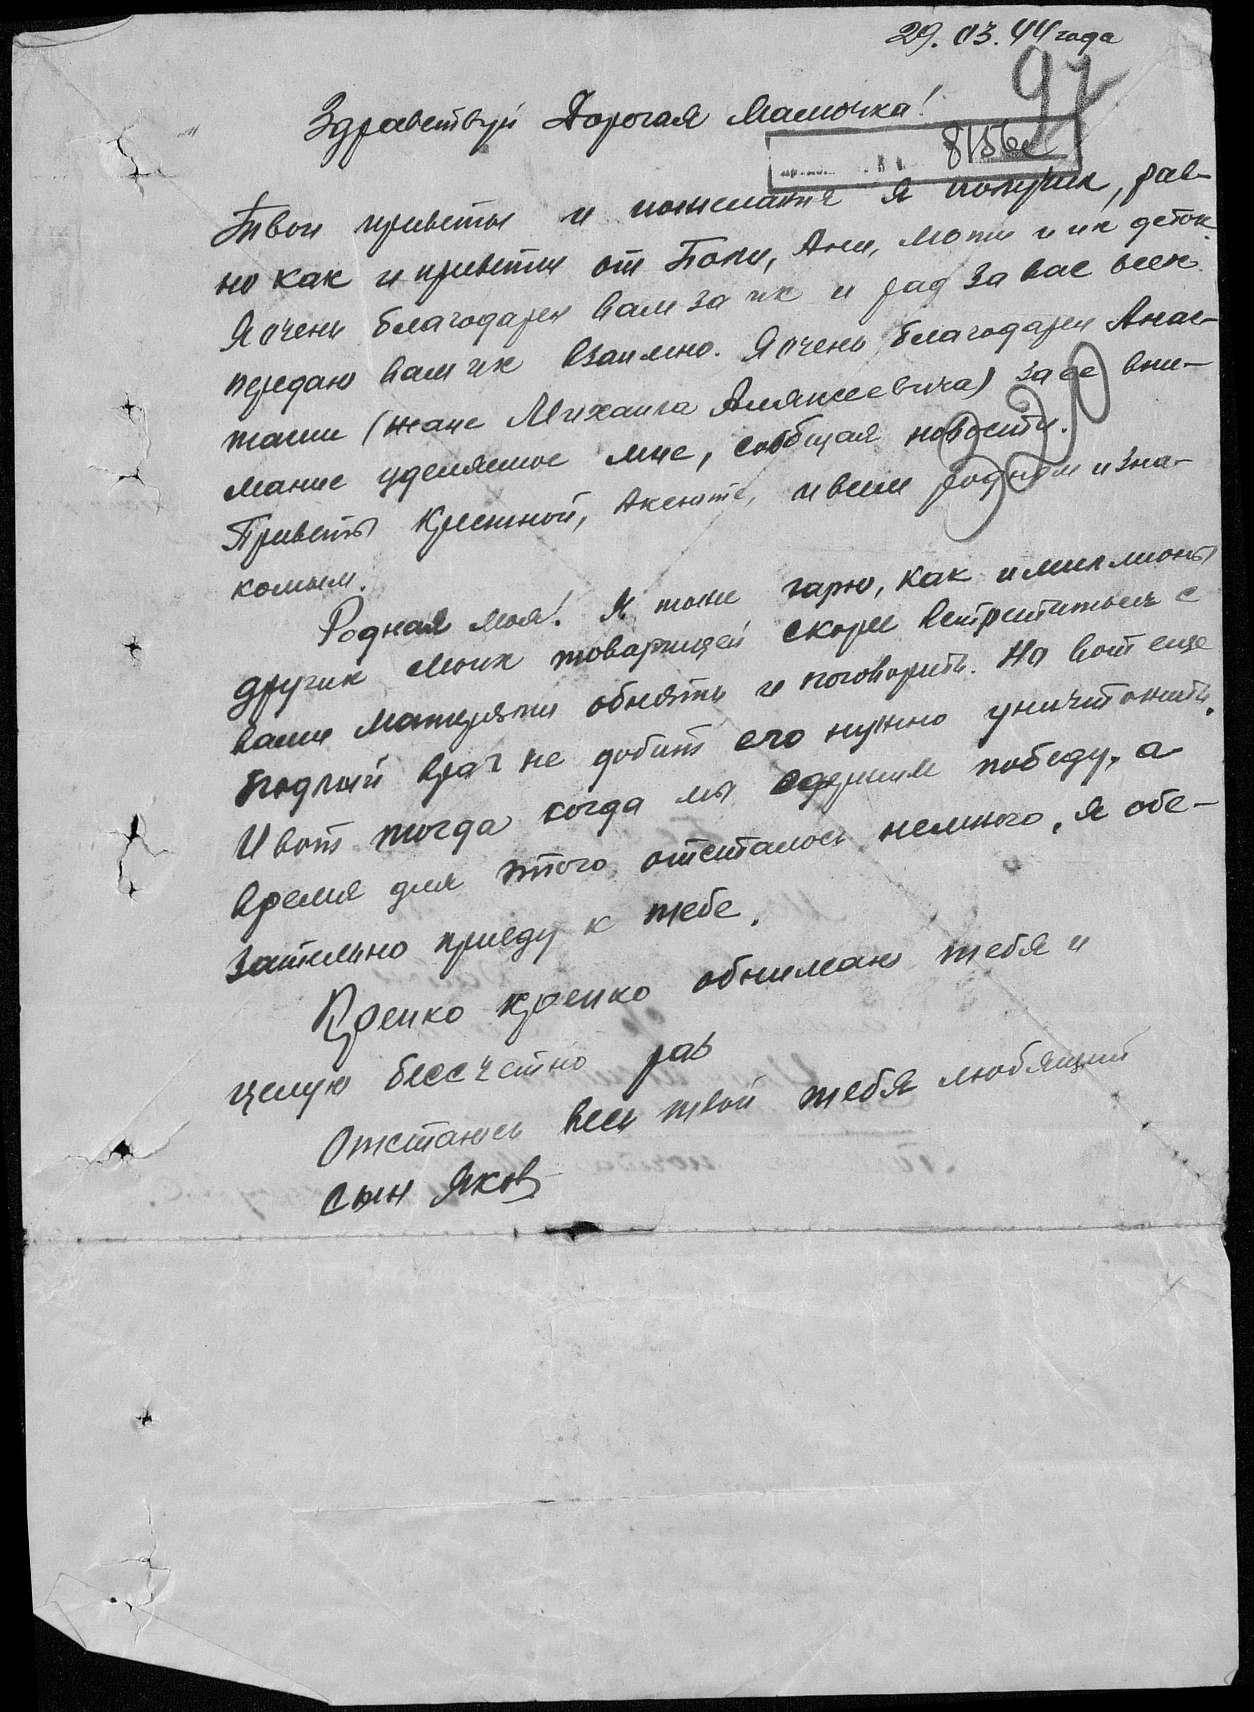 29.03.44 года
97
Здравствуй Дорогая Мамочка!
8156с
Твои приветы и пожелания я получил, рав-
но как и приветы от Поли, Ани, Моти и их деток.
Я очень благодарен вам за их и рад за вас всех
передаю вам их взаимно. Я очень благодарен Анас-
тасии (жане Михаила Алякseевича) за ее вни-
мание уделяемое мне, сообщая новости.
Приветы Крестной, Аксюте, и всем родным и зна-
комым.
Родная моя! Я тоже гарю, как и миллионы
других моих товарищей скорее встретиться с
вами матерями обнять и поговорить. Но вот еще
подлый враг не добит его нужно уничтожить.
И вот тогда когда мы одержим победу, а
время для этого отсталось немного, я обе-
зательно приеду к тебе.
Крепко крепко обнимаю тебя и
целую бессчетно раз
Отстаюсь весь твой тебя любящий
сын Яков